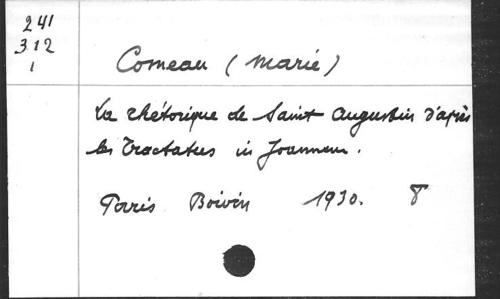 241
312
1
Comeau (Marie)
La rhétorique de Saint Augustin d'après
les Tractatus in Joannem.
Paris Boivin 1930. 8